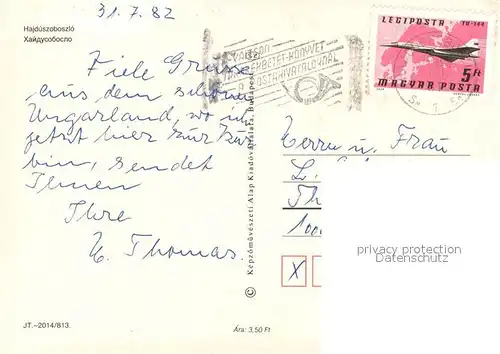 31.7.82
Hajdúszoboszló
Хайдусобосло
Viele Grüsse
aus dem schönen
Ungarland, wo ich
jetzt hier zur Kur
bin, sendet
Ihnen
Ihre
E. Thomas.
JT.–2014/813.
Ára: 3,50 Ft
© Képzőművészeti Alap Kiadóvállalata, Budapest
VÁLTSON
KÖNYVET
POSTAHIVATALOKNÁL
LEGIPOSTA TU-144
5 Ft
MAGYAR POSTA
Herrn u. Frau
L.
Th
100
X
privacy protection
Datenschutz